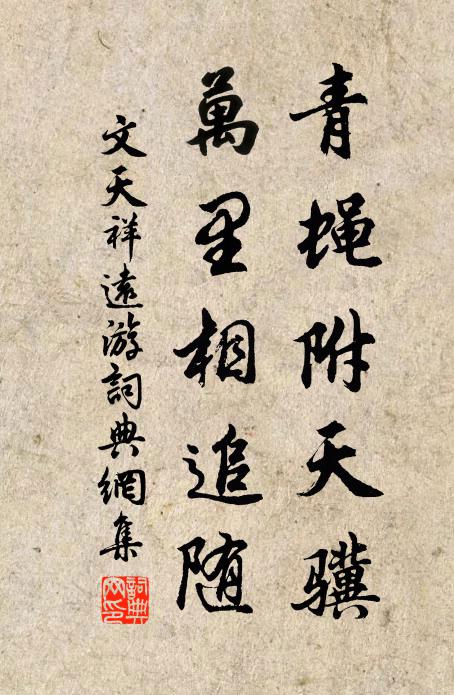 青蝇附天骥
萬里相追随
文天祥遠游詞典網集
詞典网印